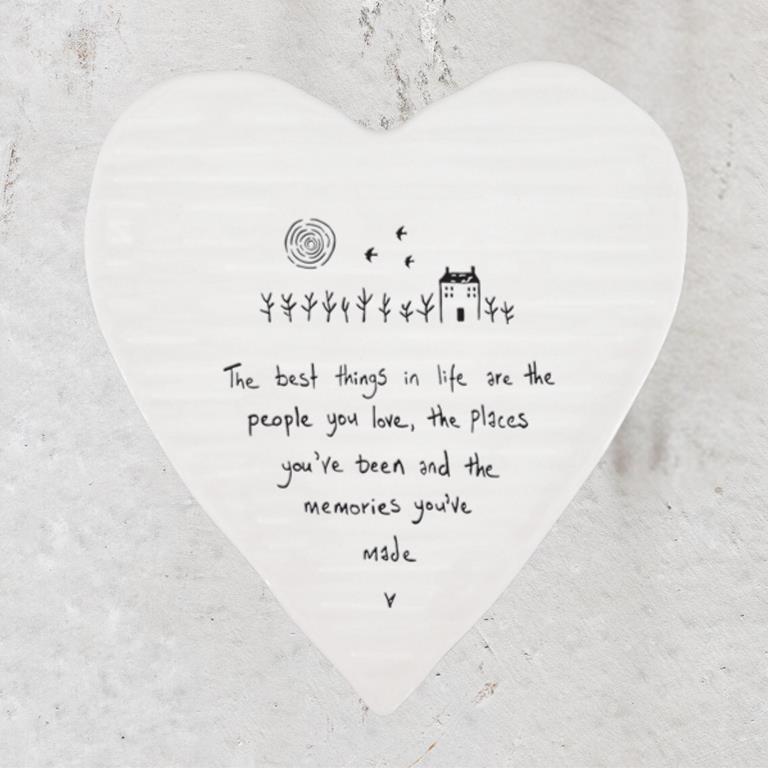 The best things in life are the
people you love, the places
you've been and the
memories you've
made